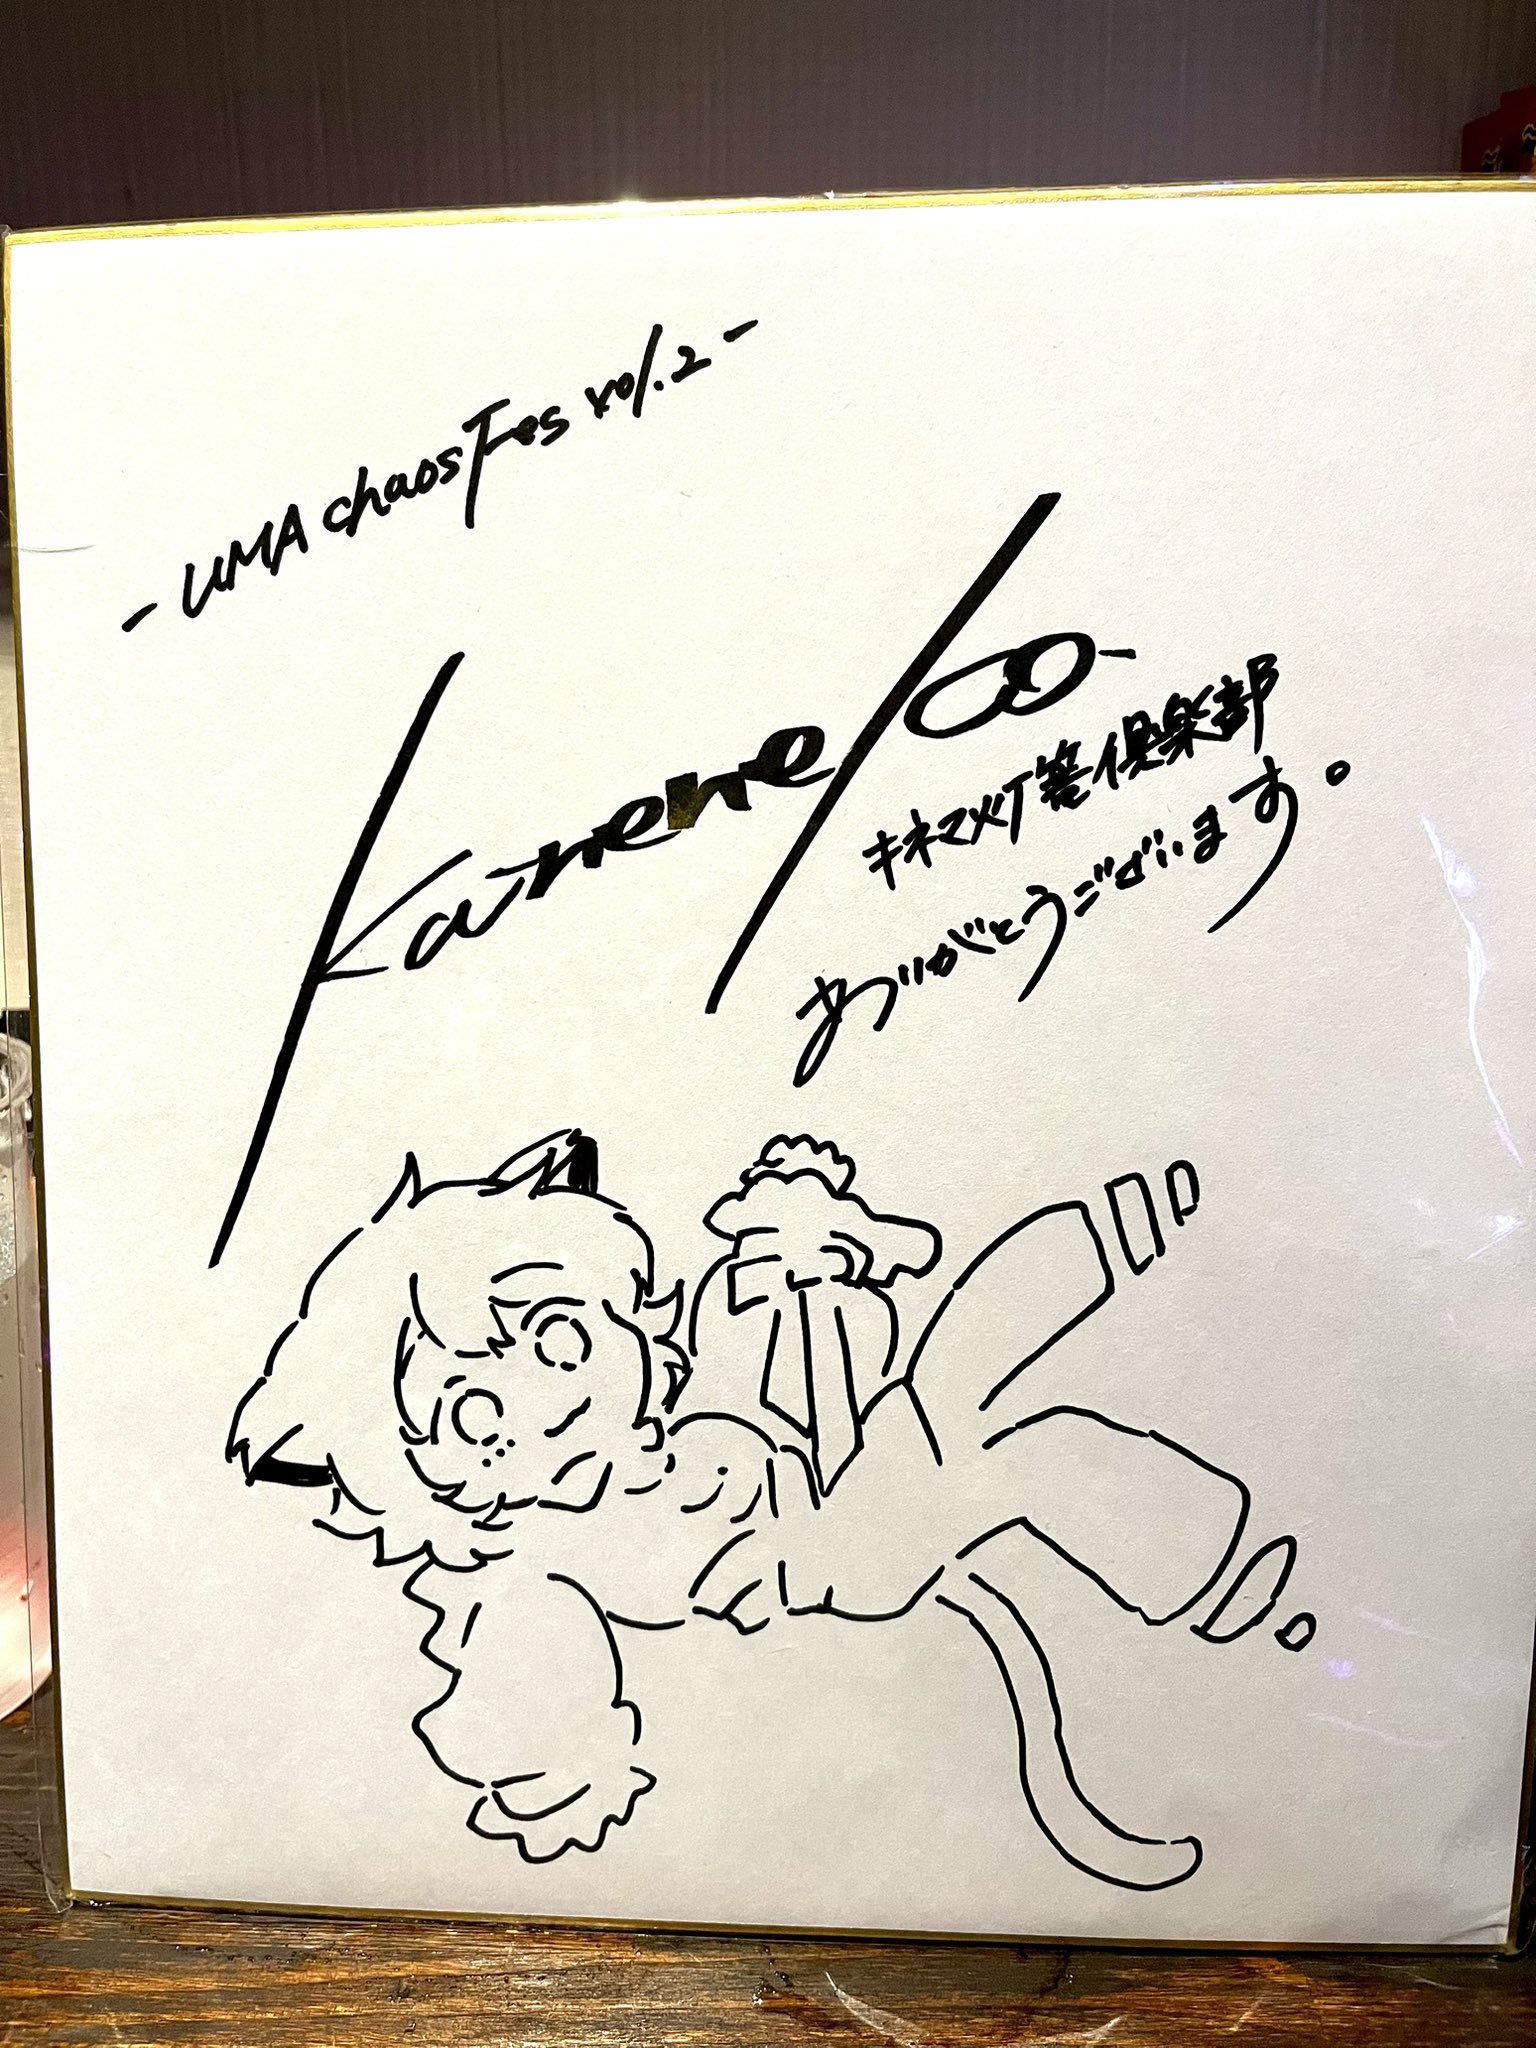 - UMA chaosFes vol.2 -
キネマ灯篭倶楽部
ありがとうございます。